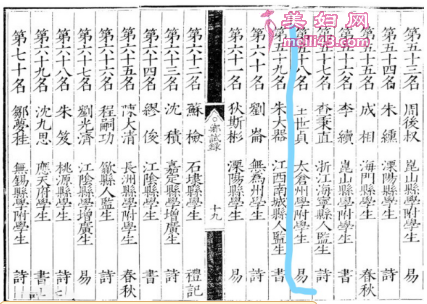 美妇网
meili43.com
第五十三名 周後叔 崑山縣學附學生 易
第五十四名 朱纁 溧陽縣學附學生 詩
成相 海門縣學附學生 春秋
十六名 李續 崑山縣學附學生 詩
十七名 秉貞 浙江海寧縣人監生 詩
十八名 王世貞 太倉州學附學生 易
十九名 朱大器 江西南城縣人監生 書
第六十名 劉崙 無為州學生 詩
第六十一名 狄斯彬 溧陽縣學附學生 易
試錄 十九
第六十二名 蘇檢 石埭縣學附學生 禮記
第六十三名 沈積 嘉定縣學增廣生 詩
第六十四名 繆俊 江陰縣學附學生 書
第六十五名 濟 長洲縣學附學生 春秋
第六十六名 程嗣功 歙縣人監生 詩
第六十七名 劉光濟 江陰縣學增廣生 易
第六十八名 朱笈 桃源縣學附學生 詩
第六十九名 沈九思 應天府學附學生 書
第七十名 鄒夢桂 無錫縣學附學生 詩